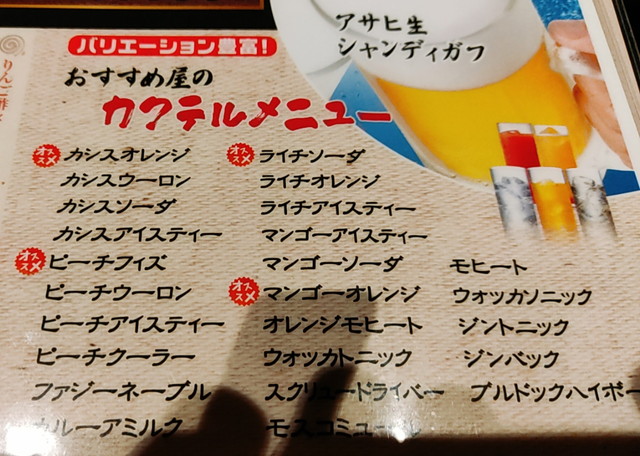 アサヒ生
シャンディガフ
バリエーション豊富!
おすすめ屋の
カクテルメニュー
オススメ カシスオレンジ
カシスウーロン
カシスソーダ
カシスアイスティー
オススメ ピーチフィズ
ピーチウーロン
ピーチアイスティー
ピーチクーラー
ファジーネーブル
カルーアミルク
オススメ ライチソーダ
ライチオレンジ
ライチアイスティー
マンゴーアイスティー
マンゴーソーダ
オススメ マンゴーオレンジ
オレンジモヒート
ウオッカトニック
スクリュードライバー
モスコミュール
モヒート
ウォッカソニック
ジントニック
ジンバック
ブルドックハイボー
りんご酢